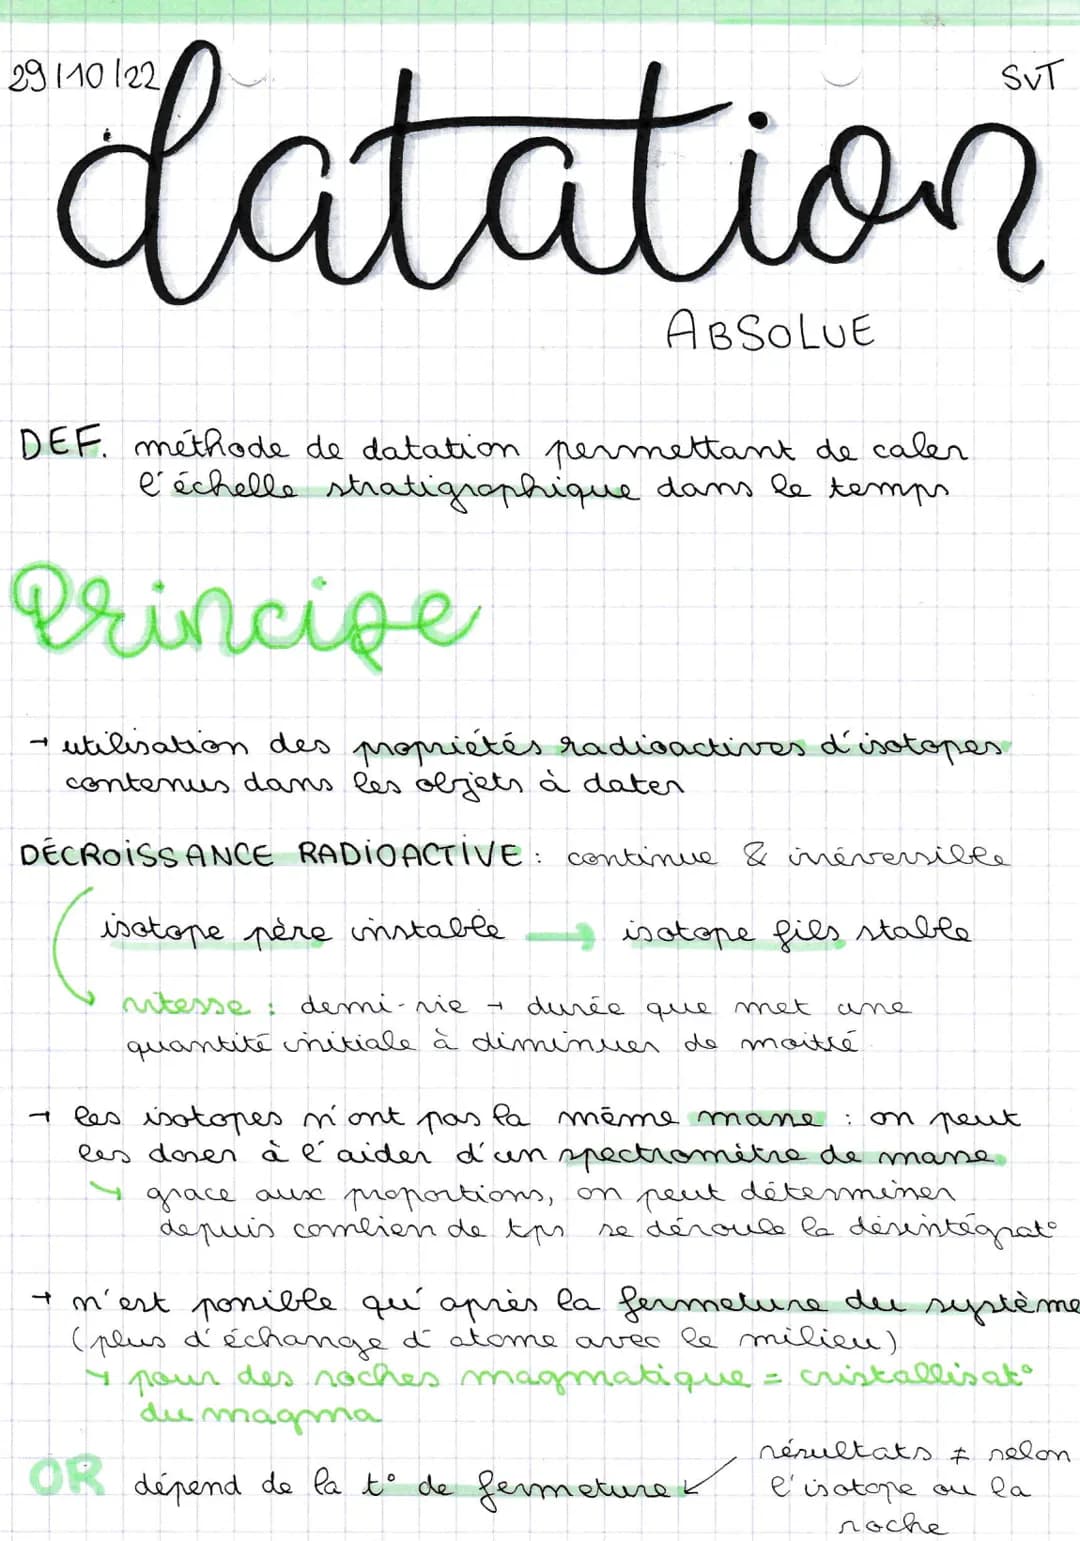 29/10/22
SVT
datation
ABSOLUE
DEF. méthode de datation permettant de caler
l'échelle stratigraphique dans le temps
Principe
→ utilisation des propriétés radioactives d'isotopes
contenus dans les objets à dater
DÉCROISSANCE RADIOACTIVE : continue & irréversible
isotope père instable → isotope fils stable
vitesse : demi-vie → durée que met une
quantité initiale à diminuer de moitié
→ les isotopes n'ont pas la même masse : on peut
les doser à l'aider d'un spectromètre de masse
↳ grace aux proportions, on peut déterminer
depuis combien de tps se déroule la désintégrat°
→ n'est possible qu'après la fermeture du système
(plus d'échange d'atome avec le milieu)
↳ pour des roches magmatique = cristallisat°
du magma
OR dépend de la t° de fermeture ↙
résultats ≠ selon
l'isotope ou la
roche